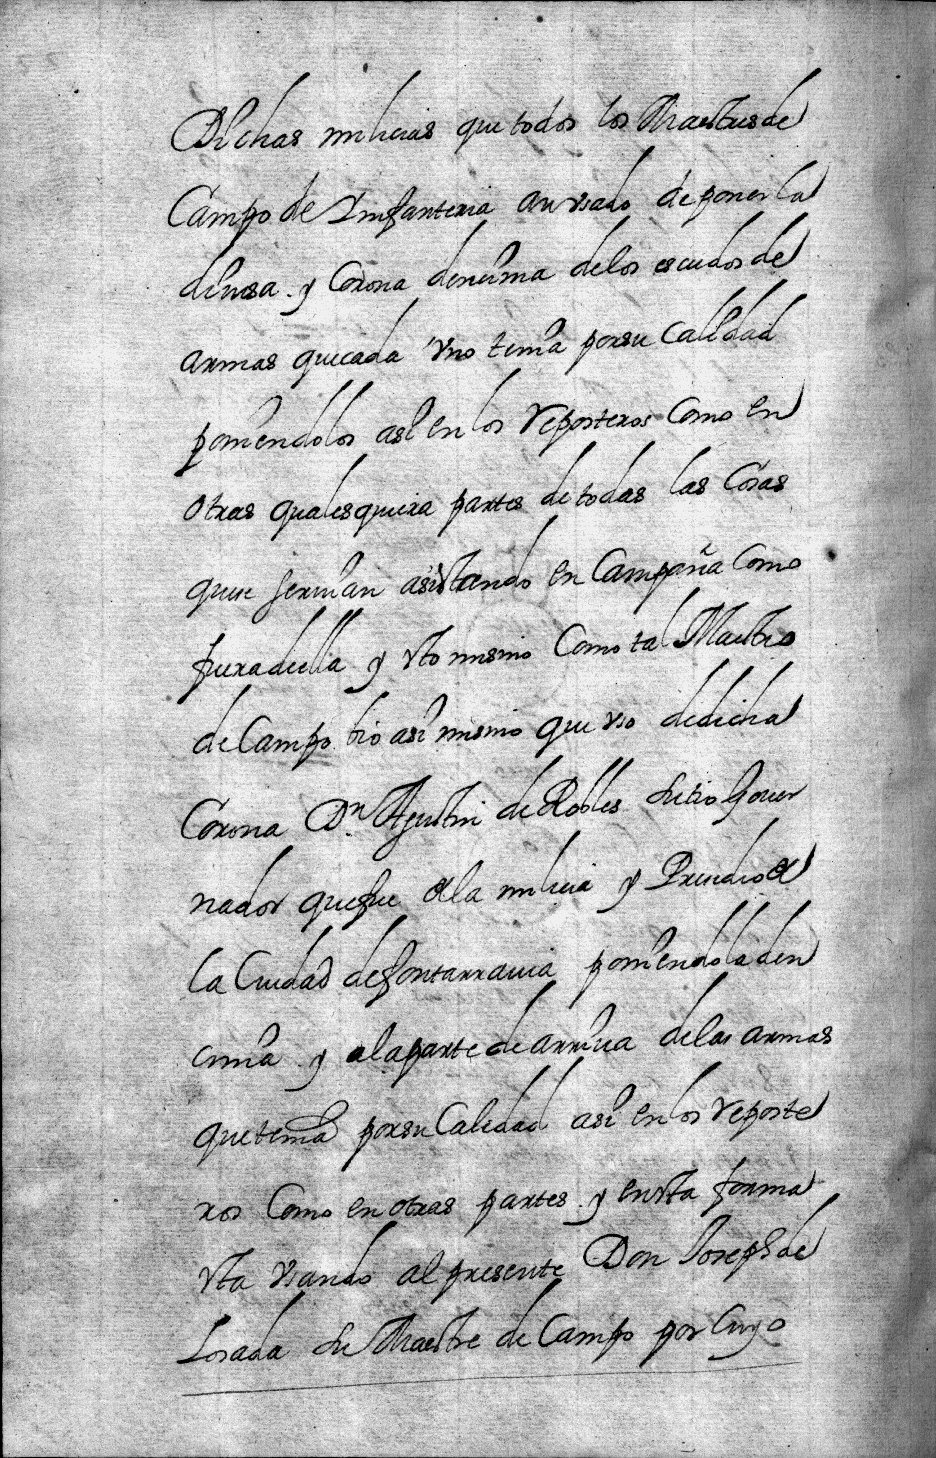 Dichas milicias que todos los Maestres de
Campo de Ymfanteria an vsado de poner la
diuisa y Corona denzima de los escudos de
armas que cada vno tenia por su Calidad
poniendolos asi en los reposteros Como en
otras qualesquiera partes de todas las Cosas
que se seruian asistando en Campaña Como
fuera de ella y esto mismo Como tal Maestro
de Campo bio asi mismo que vso de dicha
Corona Dn Agustin de Robles su tio Gouer
nador que fue de la milicia y Presidio de
la Ciudad de fontarrauia poniendola den
cima y a la parte de arriua de las armas
que tenia por su Calidad asi en los reposte
ros Como en otras partes y en esta forma
esta vsando al presente Don Joseph de
Losada su Maestre de Campo por Cuyo